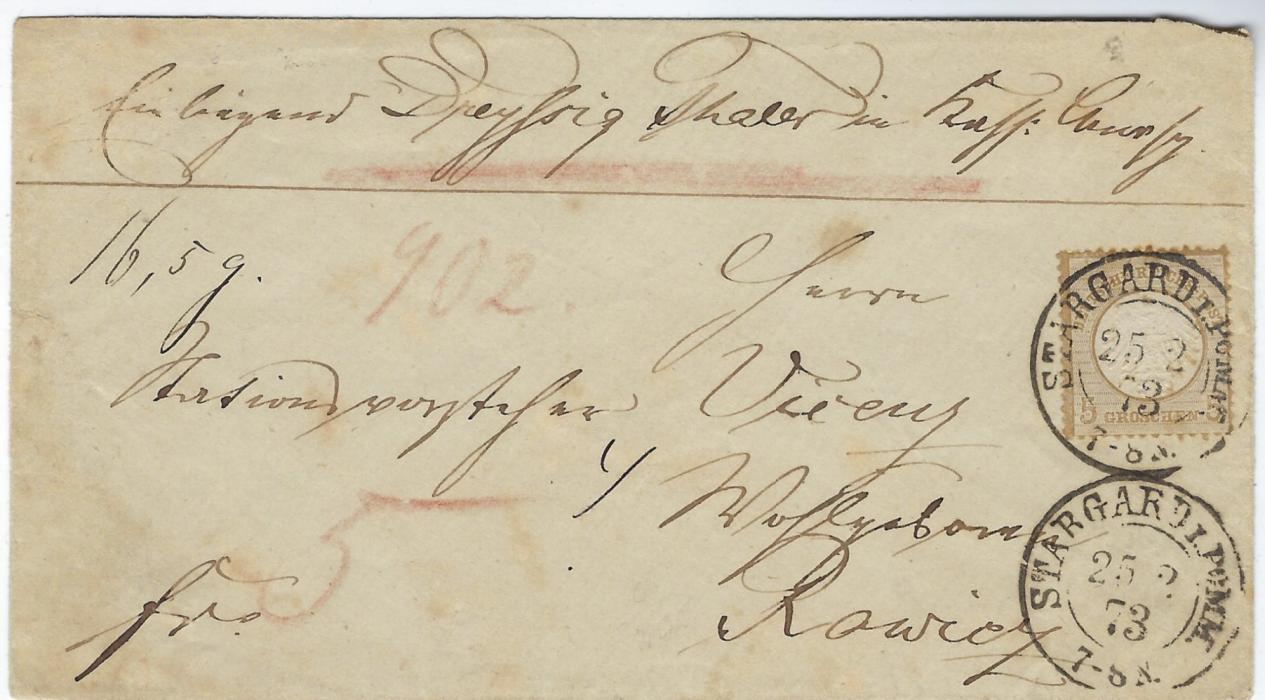 Einliegend Dreyssig Thaler in Kass: Anwsg.
16,5 g.
902.
Herrn
Stationsvorsteher Vicenz
Wohlgeborn
5
fro.
Rawicz
STARGARD I. POMM.
25 2
73
7-8 N.
5 GROSCHEN 5
STARGARD I. POMM.
25 2
73
7-8 N.